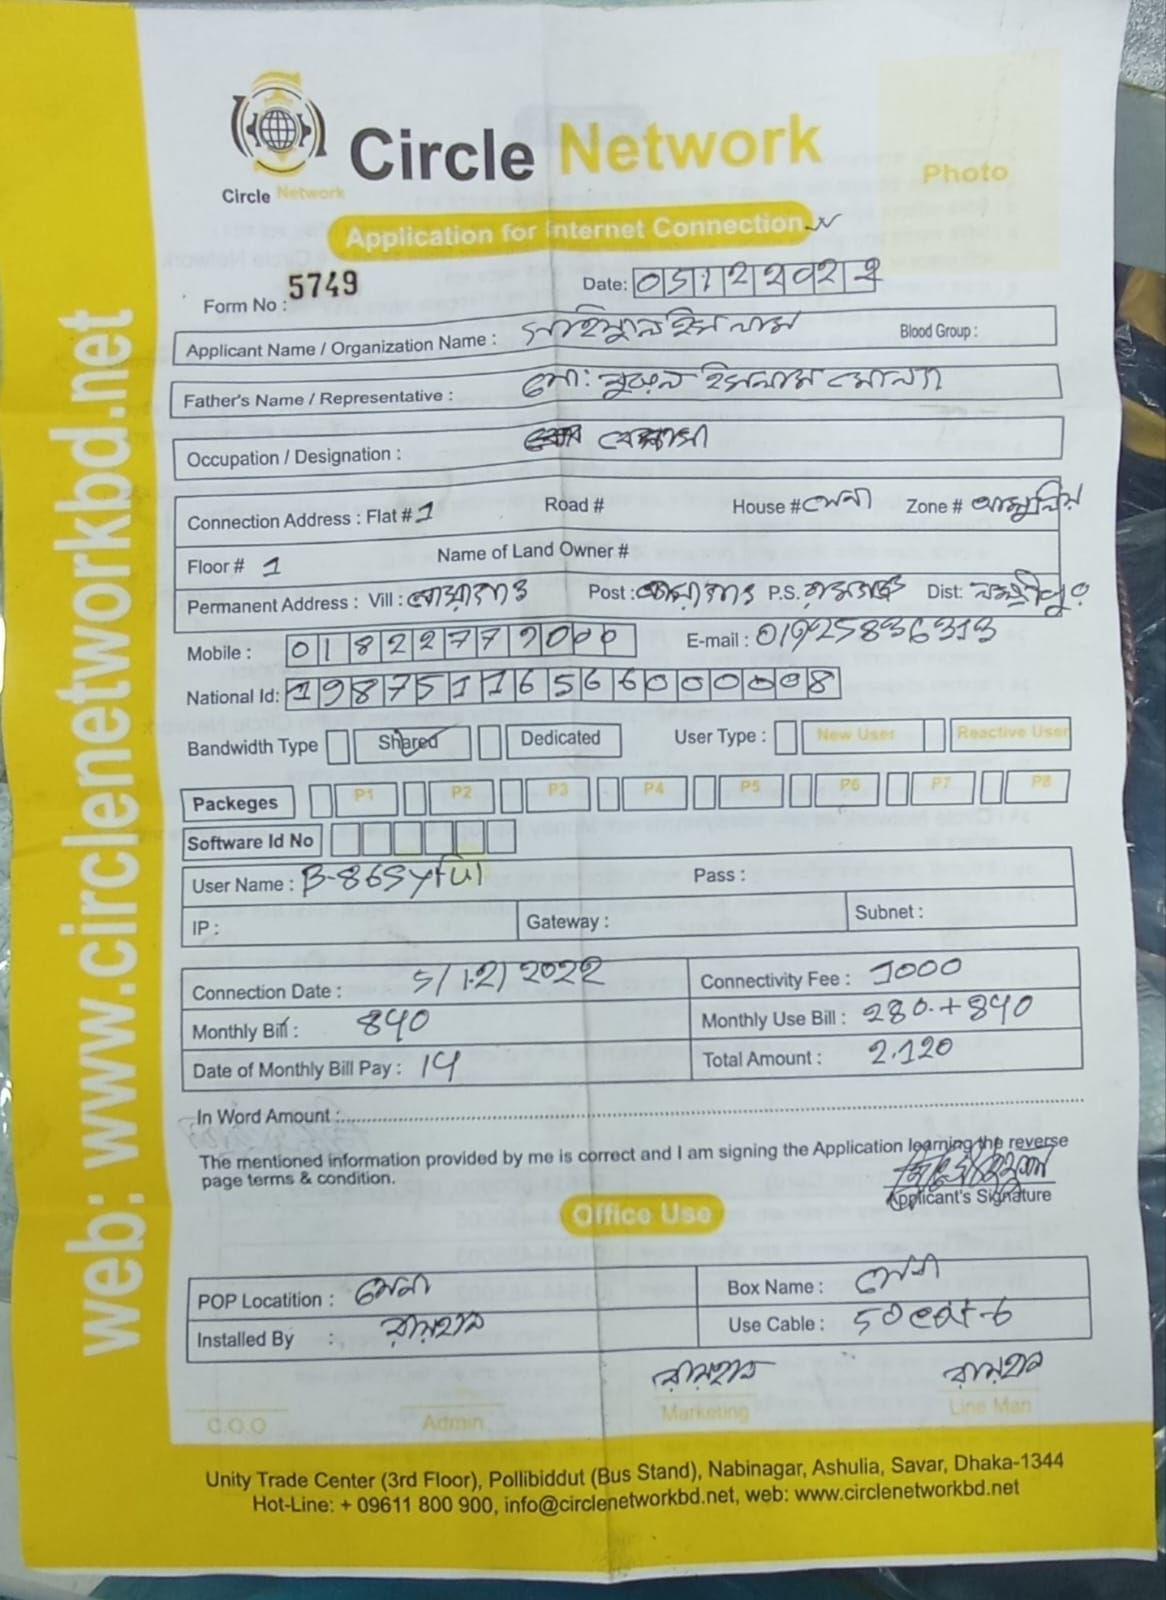 Circle Network
Circle Network
Photo
Application for Internet Connection
Form No : 5749
Date: 05122022
Applicant Name / Organization Name : সাইফুল ইসলাম Blood Group :
Father's Name / Representative : মো: নুরুল ইসলাম মোল্যা
Occupation / Designation :
Connection Address : Flat # 1 Road # House # Zone #
Floor # 1 Name of Land Owner #
Permanent Address : Vill : Post : P.S. Dist: লক্ষ্মীপুর
Mobile : 01822779000 E-mail : 01925836313
National Id: 19875116566000008
Bandwidth Type Shared Dedicated User Type : New User Reactive User
Packeges P1 P2 P3 P4 P5 P6 P7 P8
Software Id No
User Name : B-865yful Pass :
IP : Gateway : Subnet :
Connection Date : 5/12/2022 Connectivity Fee : 1000
Monthly Bill : 840 Monthly Use Bill : 280.+840
Date of Monthly Bill Pay : 14 Total Amount : 2.120
In Word Amount :
The mentioned information provided by me is correct and I am signing the Application learning the reverse
page terms & condition.
Applicant's Signature
Office Use
POP Locatition : Box Name :
Installed By : রায়হান Use Cable : 50 cat-6
রায়হান রায়হান
C.O.O Admin Marketing Line Man
Unity Trade Center (3rd Floor), Pollibiddut (Bus Stand), Nabinagar, Ashulia, Savar, Dhaka-1344
Hot-Line: + 09611 800 900, info@circlenetworkbd.net, web: www.circlenetworkbd.net
web: www.circlenetworkbd.net